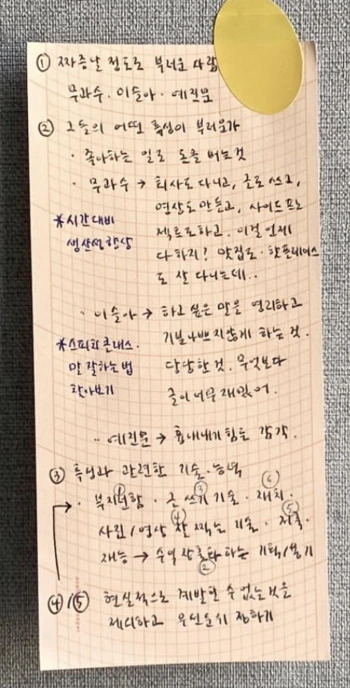 ① 짜증날 정도로 부러운 사람
무과수 · 이슬아 · 예진문
② 그들의 어떤 특성이 부러운가
· 좋아하는 일로 돈을 버는것
· 무과수 → 회사도 다니고, 글도 쓰고,
영상도 만들고, 사이드 프로
*시간대비 젝트도하고. 이걸 언제
생산성 향상 다하지? 맛집도 · 핫플레이스
도 잘 다니는데..
· 이슬아 → 하고 싶은 말을 영리하고
기분나쁘지않게 하는 것.
*스피치 콘내스. 당당한것. 무엇보다
말 잘하는 법
찾아보기 글이 너무 재밌어.
· 예진문 → 흉내내기 힘든 감각.
③ 특성과 관련한 기술 · 능력
→ · 부지런함① · 글쓰기③ 기술 · 재치⑥ ·
사진/영상 잘④ 찍는 기술 · 저축⑤ ·
재능 → 수익 창출②하는 기획/용기
④/⑤ 현실적으로 계발할 수 없는것을
제외하고 우선순위 정하기